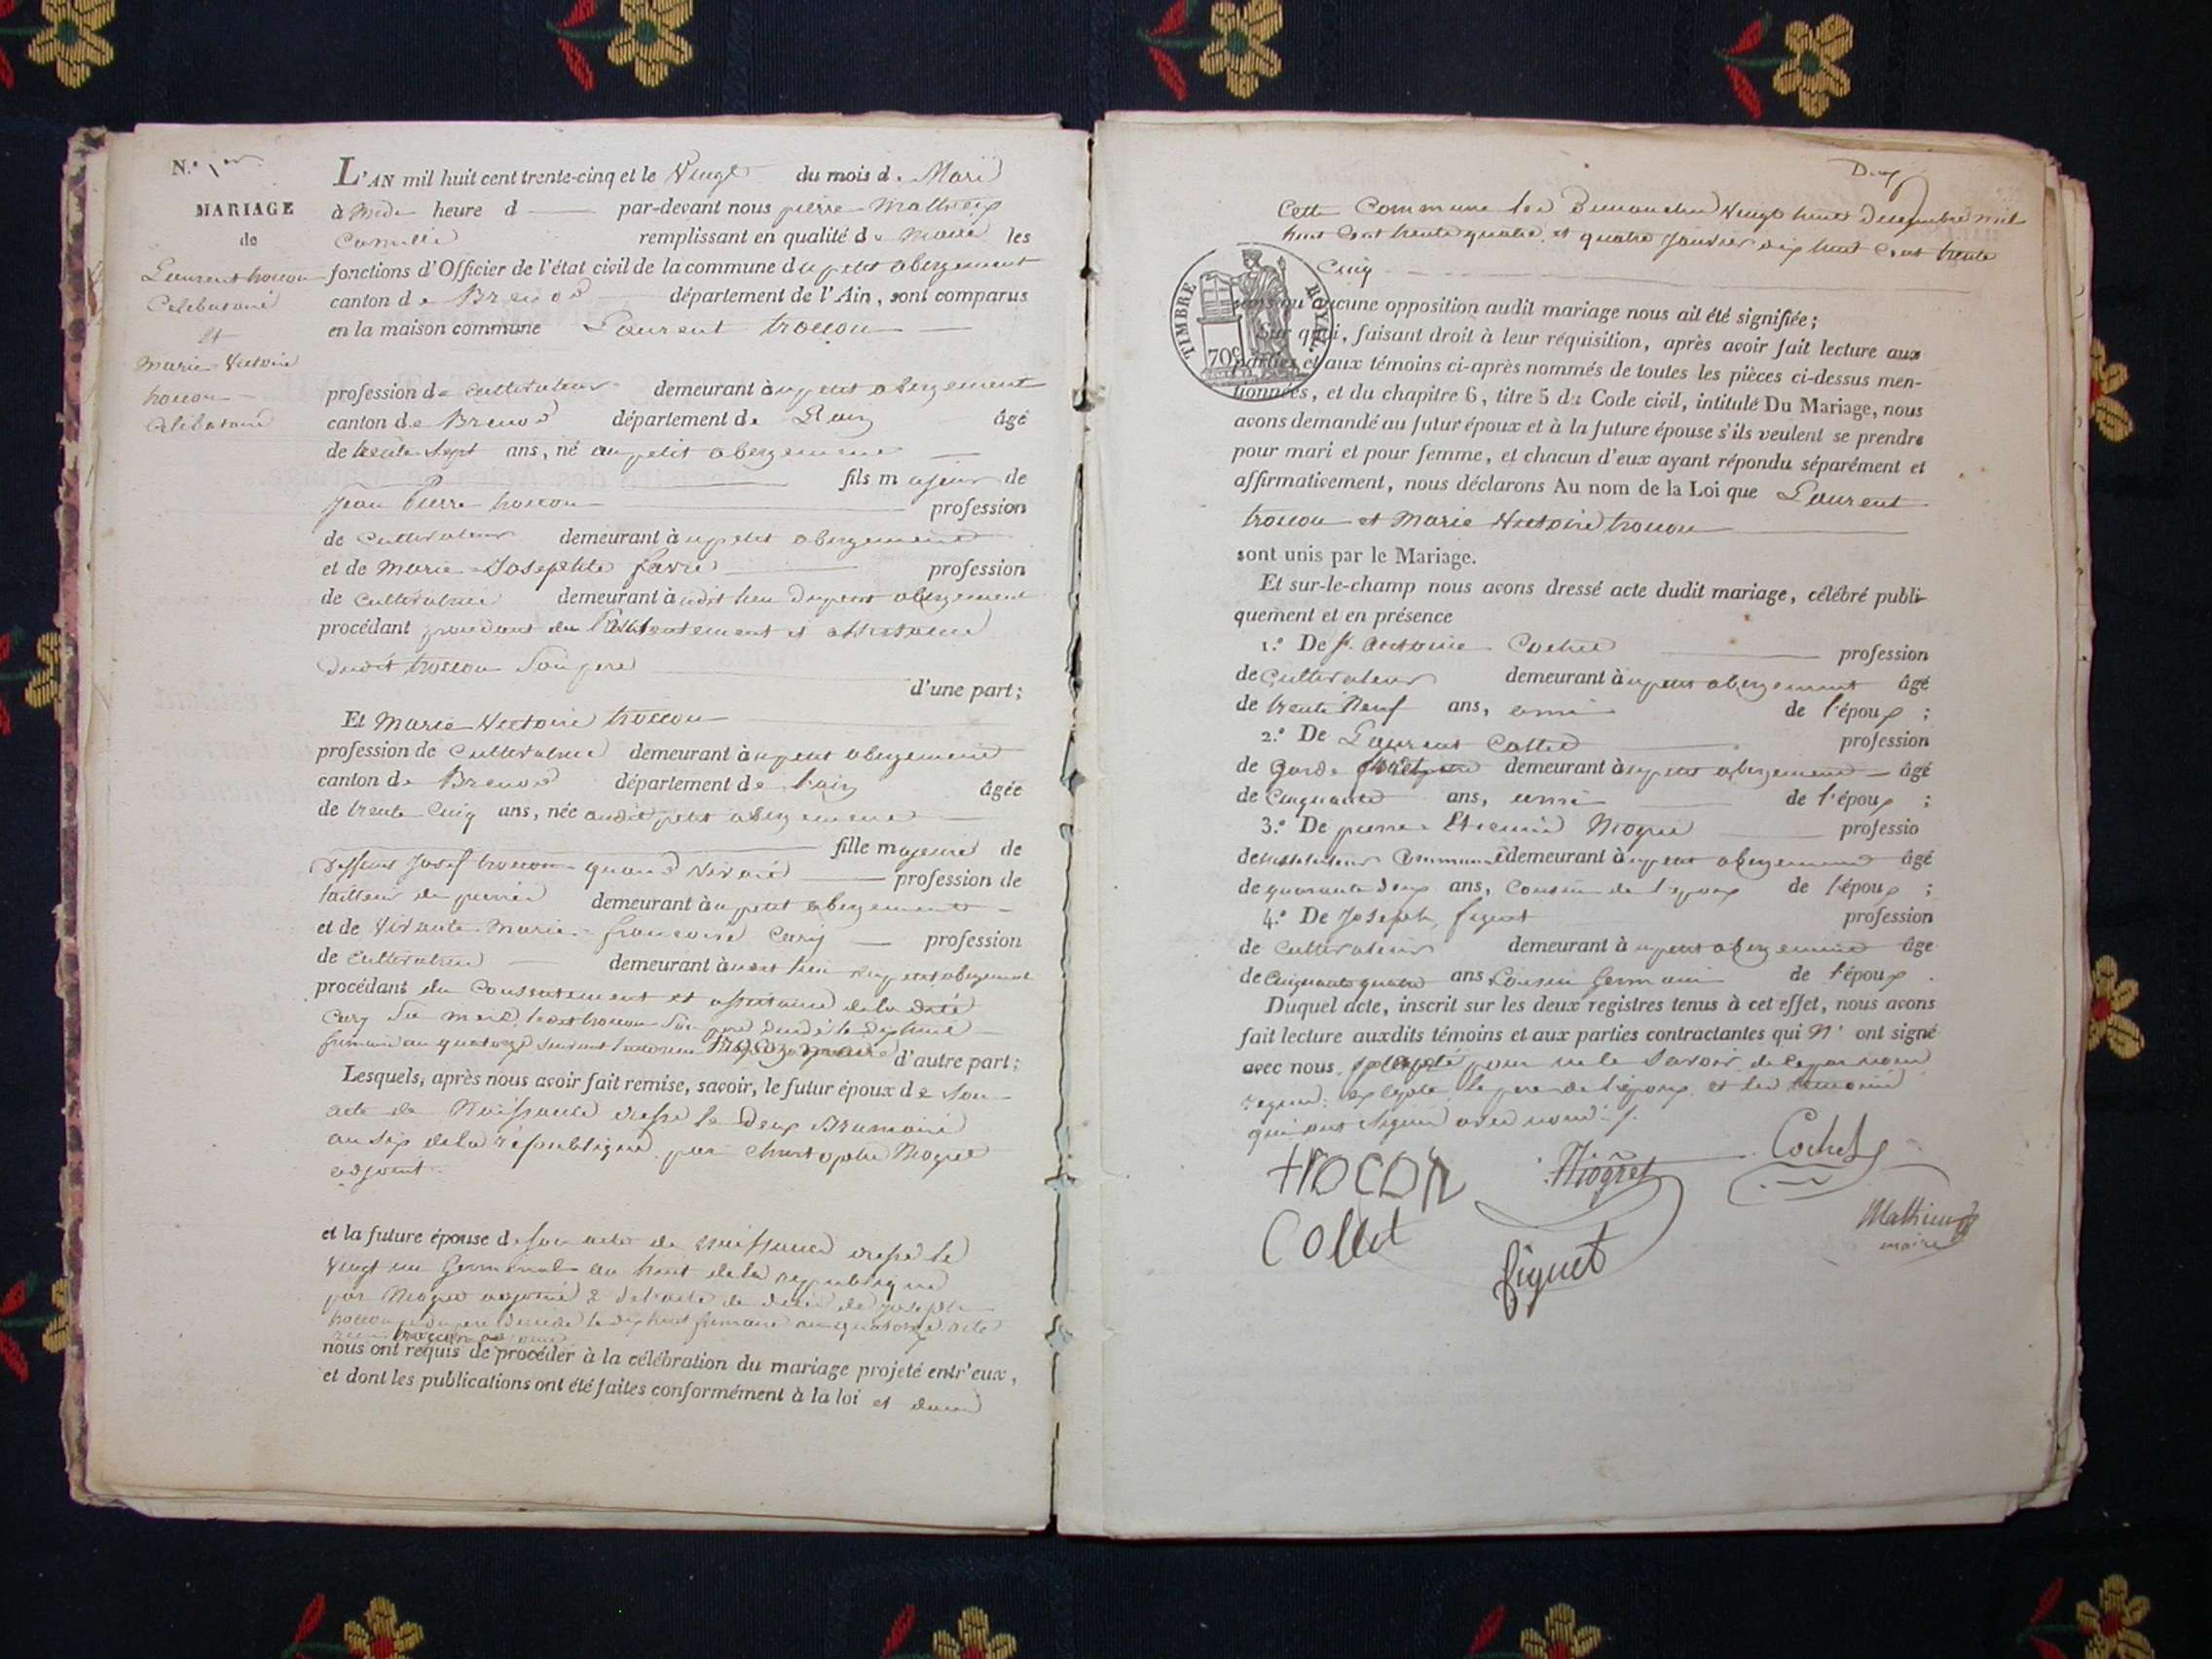 N.º 1er
MARIAGE
de
Laurent troccon
Celibataire
et
marie Victoire
troccon
Celibataire
L'AN mil huit cent trente-cinq et le Vingt du mois d
à midi heure d par-devant nous pierre Mathieux
Camille remplissant en qualité de Maire les
fonctions d'Officier de l'état civil de la commune du petit abergement
canton de Brenod département de l'Ain, sont comparus
en la maison commune Laurent troccon
profession de Cultivateur demeurant au petit abergement
canton de Brenod département de l'ain âgé
de trente Sept ans, né au petit abergement
fils majeur de
Jean Pierre troccon profession
de Cultivateur demeurant au petit abergement
et de Marie Josephte favre profession
de Cultivatrice demeurant audit lieu du petit abergement
procédant du Consentement et assistance
dudit troccon Son pere
d'une part;
Et Marie Victoire troccon
profession de Cultivatrice demeurant au petit abergement
canton de Brenod département de l'ain âgée
de trente Cinq ans, née audit petit abergement
fille majeure de
deffunt Josef troccon quand vivait profession de
tailleur de pierre demeurant au petit abergement
et de Vivante Marie francoise Cary profession
de Cultivatrice demeurant audit lieu du petit abergement
procédant du Consentement et assistance de la dite
Cary Sa mere
d'autre part;
Lesquels, après nous avoir fait remise, savoir, le futur époux de Son
acte de Naissance dressé le deux Brumaire
an six de la république par Christophe Niogret
adjoint
et la future épouse de Son acte de naissance dressé le
Vingt un Germinal an huit de la republique
par Niogret adjoint 2 de l'acte de deces de Joseph
troccon
nous ont requis de procéder à la célébration du mariage projeté entr'eux,
et dont les publications ont été faites conformément à la loi et dans
Deux
Cette Commune les Dimanches Vingt huit decembre mil
huit Cent trente quatre et quatre Janvier dix huit Cent trente
Cinq
TIMBRE ROYAL
70c
sans qu'aucune opposition audit mariage nous ait été signifiée;
Sur quoi, faisant droit à leur réquisition, après avoir fait lecture aux
parties et aux témoins ci-après nommés de toutes les pièces ci-dessus men-
tionnées, et du chapitre 6, titre 5 du Code civil, intitulé Du Mariage, nous
avons demandé au futur époux et à la future épouse s'ils veulent se prendre
pour mari et pour femme, et chacun d'eux ayant répondu séparément et
affirmativement, nous déclarons Au nom de la Loi que Laurent
troccon et Marie Victoire troccon
sont unis par le Mariage.
Et sur-le-champ nous avons dressé acte dudit mariage, célébré publi-
quement et en présence
1.º De antoine Cochet profession
de Cultivateur demeurant au petit abergement âgé
de trente Neuf ans, ami de l'époux ;
2.º De Laurent Collet profession
de Garde demeurant au petit abergement âgé
de Cinquante ans, ami de l'époux ;
3.º De pierre Etienne Niogret professio
de instituteur Communal demeurant au petit abergement âgé
de quarante deux ans, Cousin de l'epoux de l'époux ;
4.º De Joseph figuet profession
de Cultivateur demeurant au petit abergement âgé
de Cinquante quatre ans Cousin Germain de l'époux .
Duquel acte, inscrit sur les deux registres tenus à cet effet, nous avons
fait lecture auxdits témoins et aux parties contractantes qui N' ont signé
avec nous pour ne le Savoir de ce par nous
requis excepté le pere de l'époux et les temoins
qui ont Signé avec nous
trocon
Niogret
Cochet
Collet
figuet
Mathieux
maire